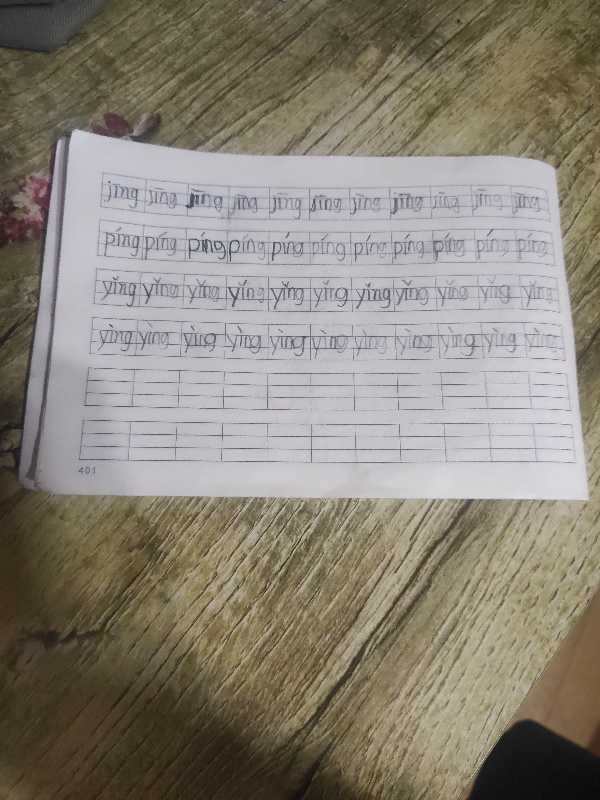 jīng jīng jīng jīng jīng jīng jīng jīng jīng jīng jīng
píng píng píng píng píng píng píng píng píng píng píng
yǐng yǐng yǐng yǐng yǐng yǐng yǐng yǐng yǐng yǐng yǐng
yìng yìng yìng yìng yìng yìng yìng yìng yìng yìng yìng
401